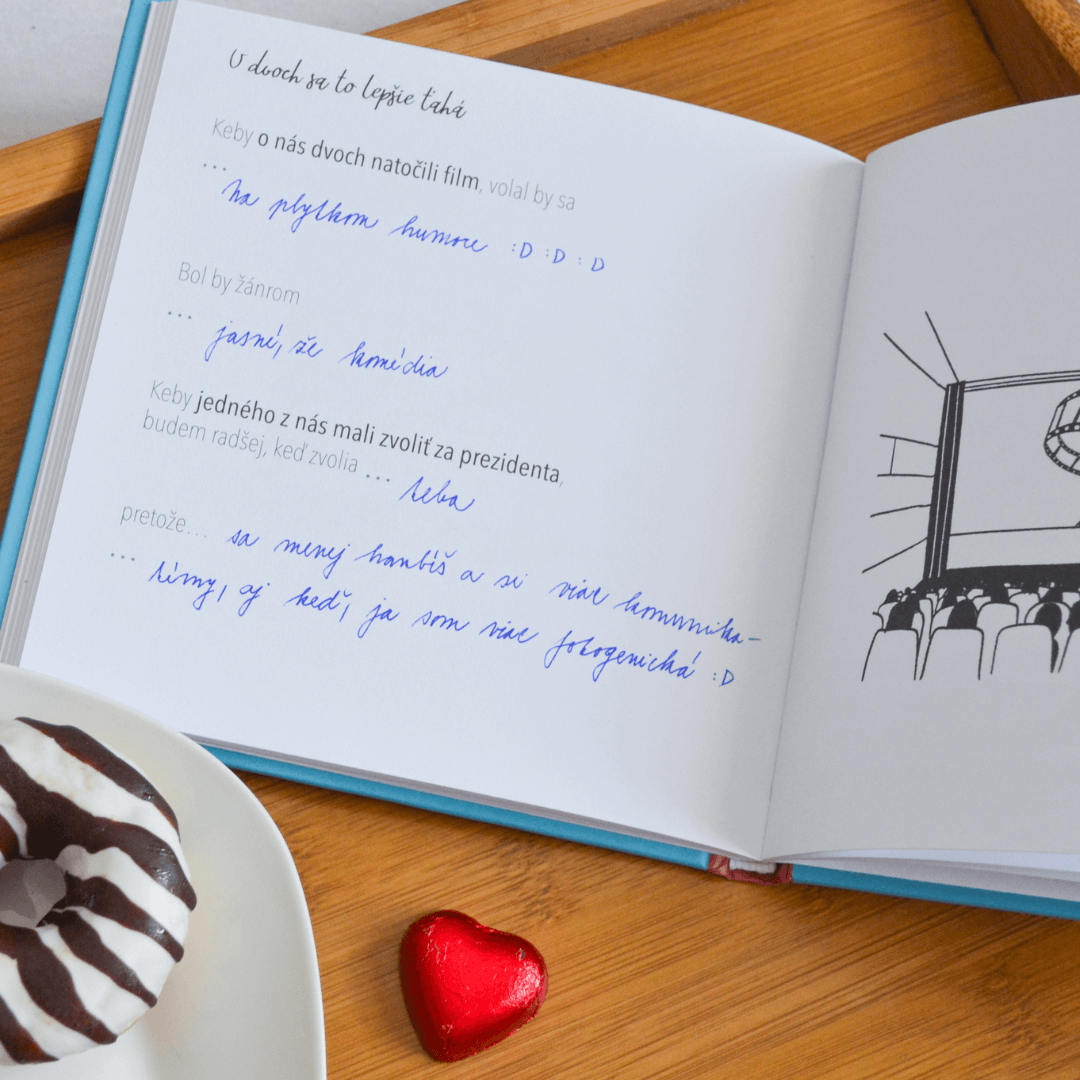 V dvoch sa to lepšie ťahá
Keby o nás dvoch natočili film, volal by sa
...
na plytkom humore :D :D :D
Bol by žánrom
...
jasné, že komédia
Keby jedného z nás mali zvoliť za prezidenta,
budem radšej, keď zvolia ... teba
pretože... sa menej hanbíš a si viac komunika-
... tívny, aj keď, ja som viac fotogenická :D